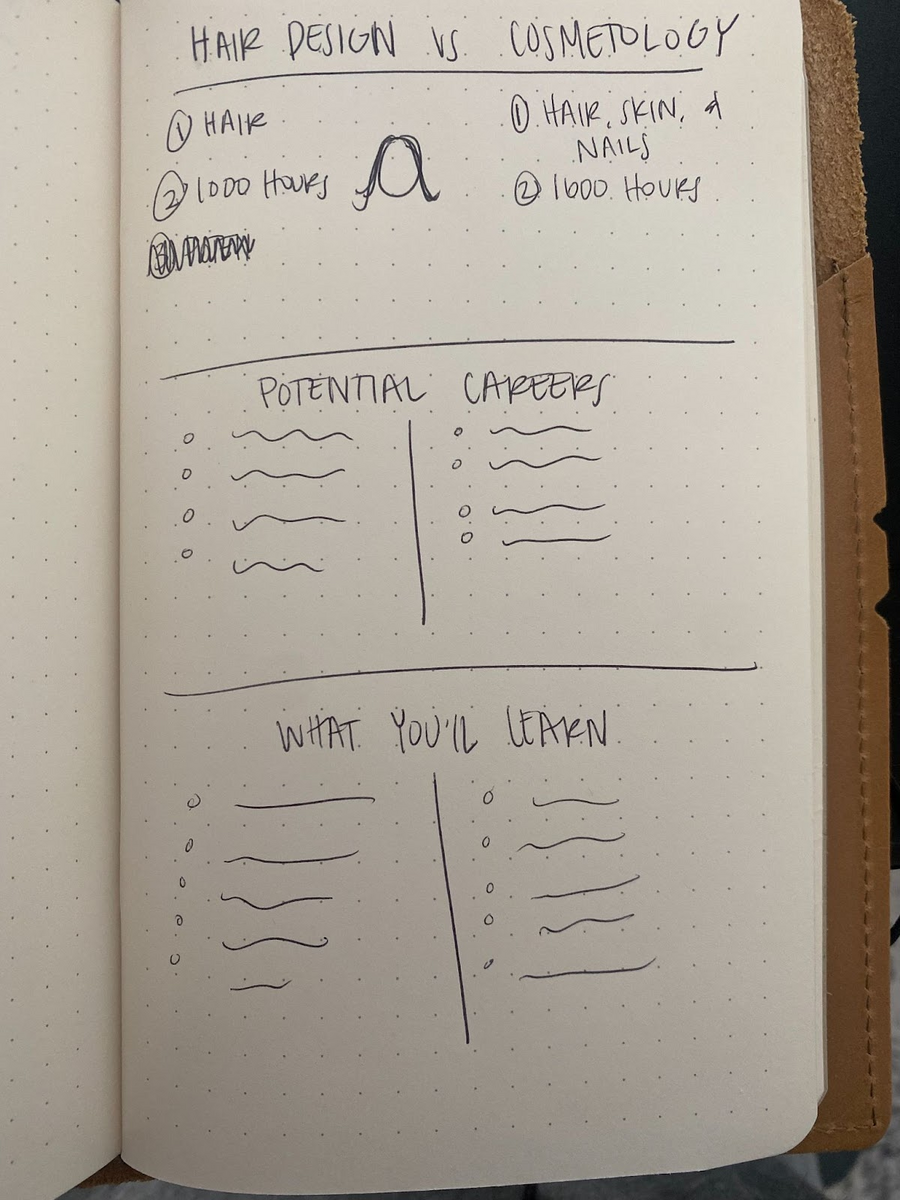 HAIR DESIGN VS COSMETOLOGY
① HAIR
② 1000 HOURS
① HAIR, SKIN, &
NAILS
② 1600 HOURS
POTENTIAL CAREERS
WHAT YOU'LL LEARN